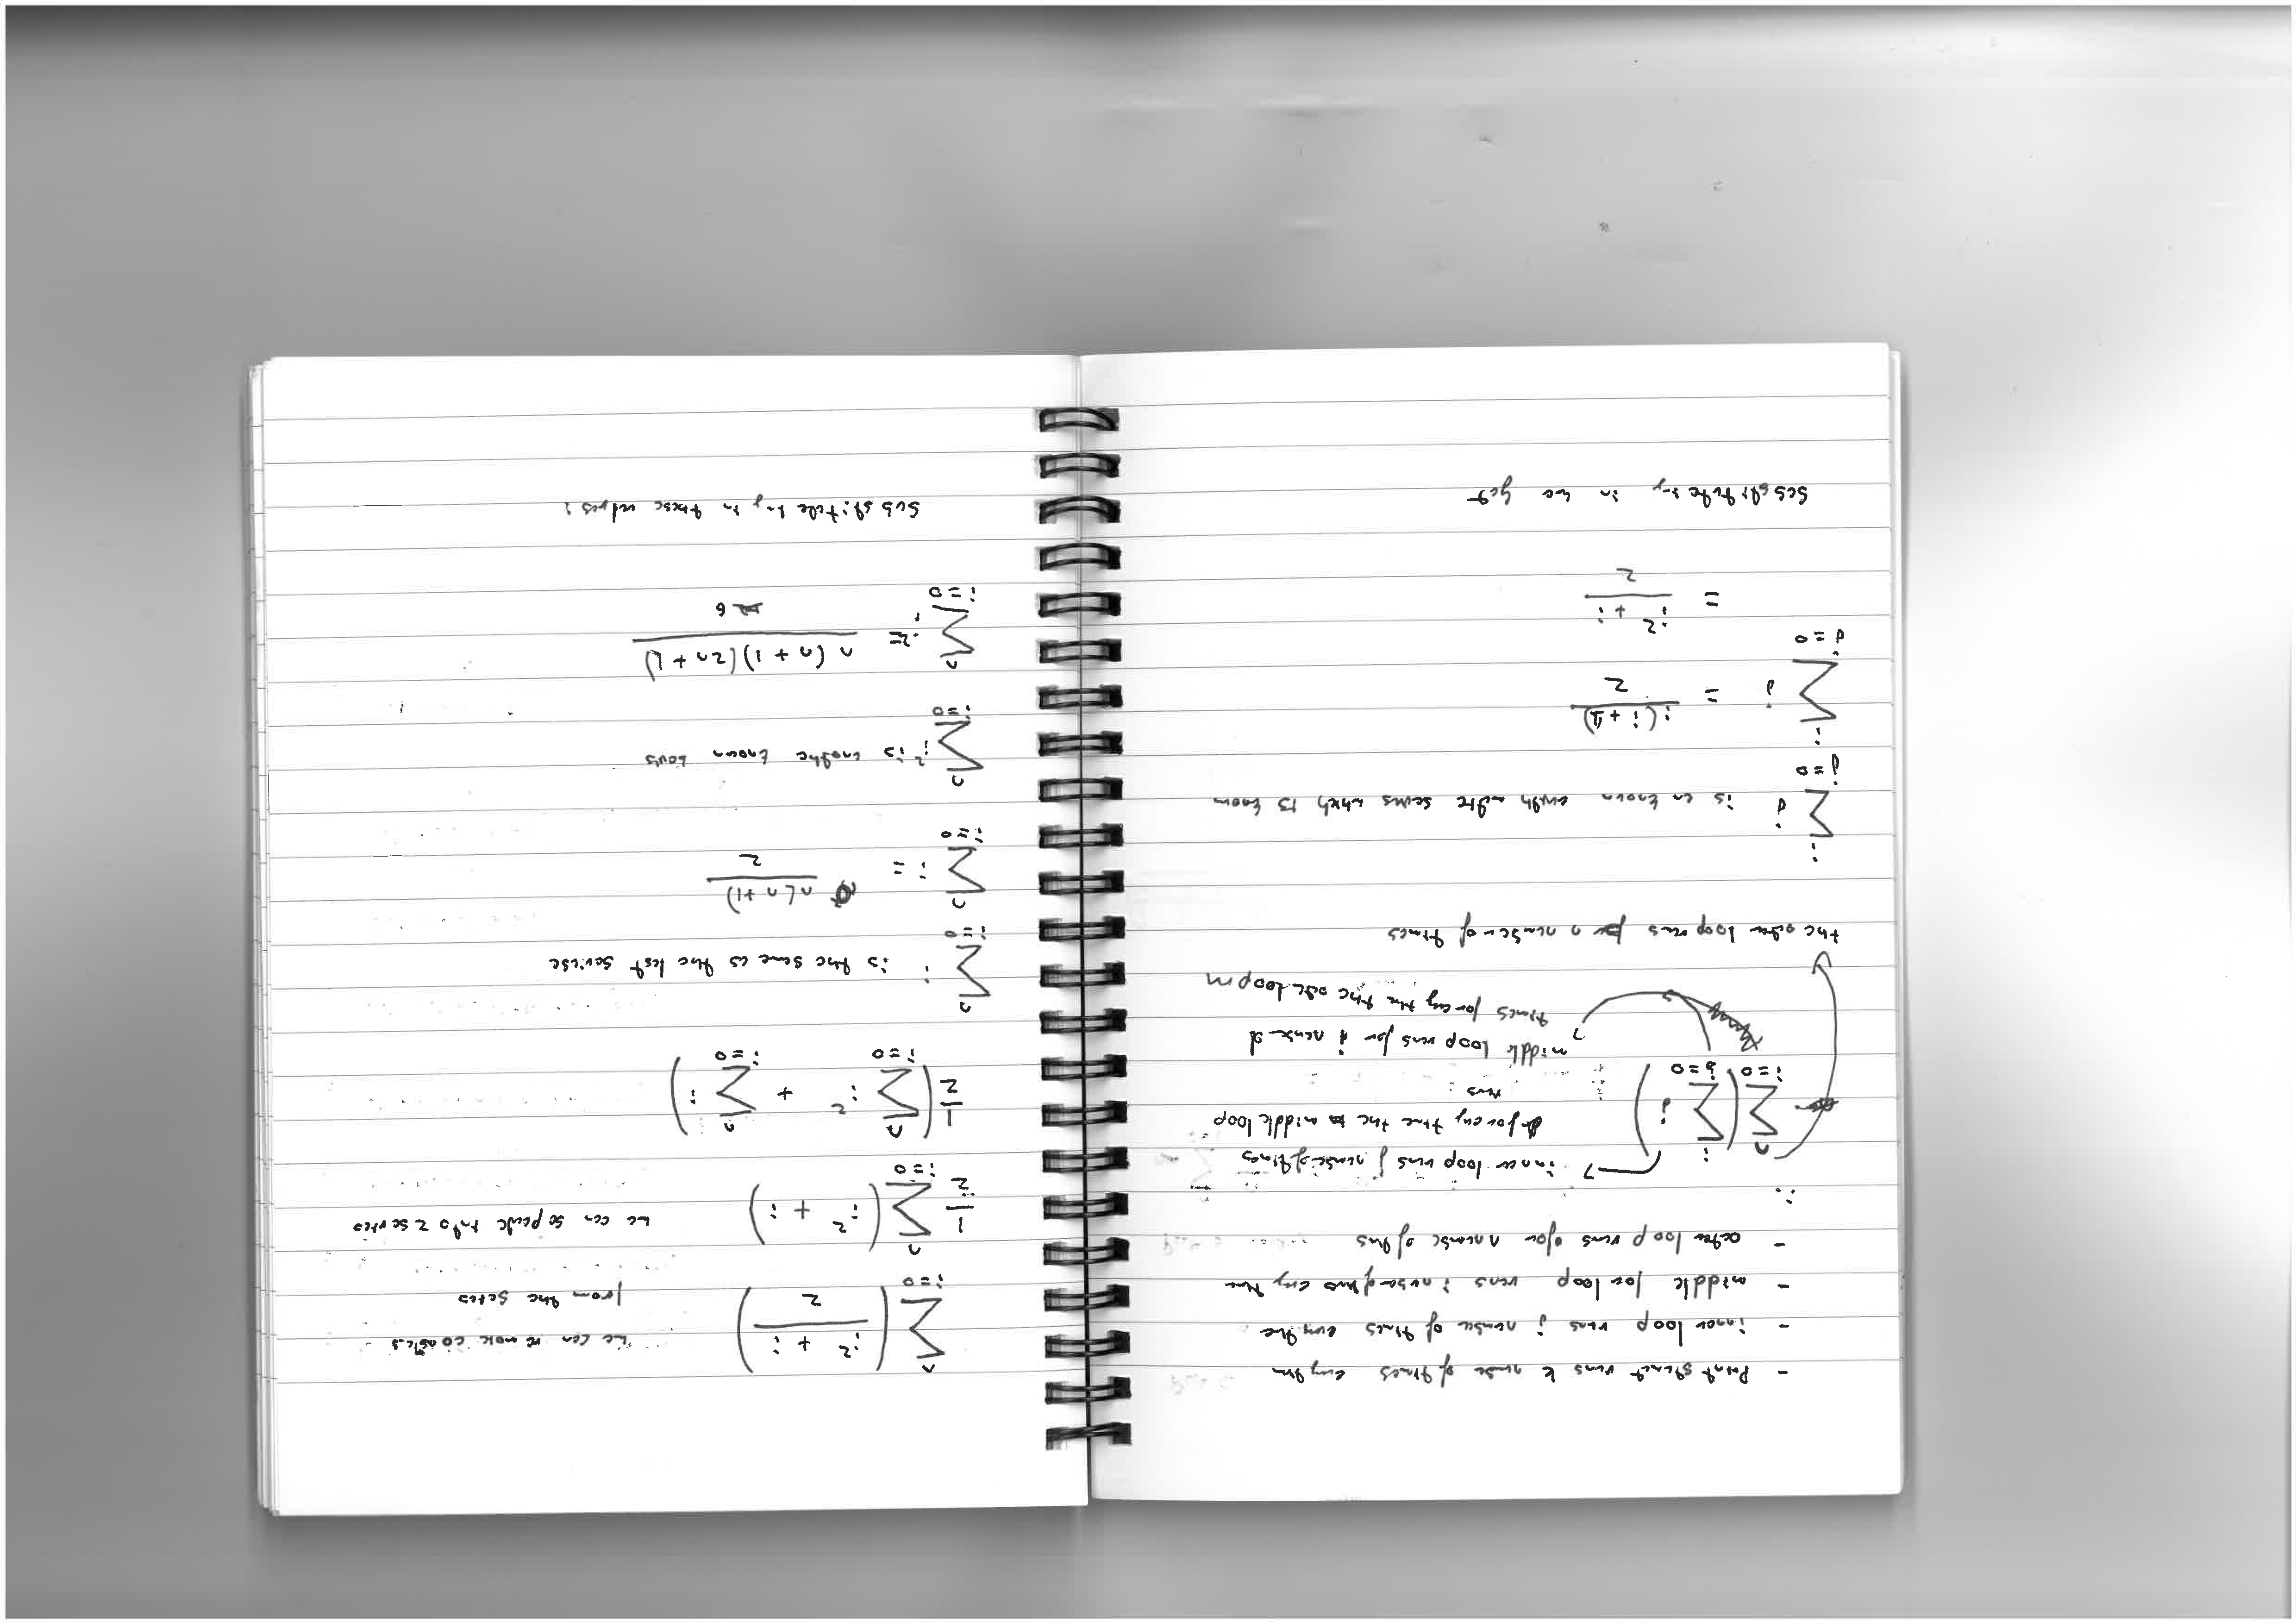 - Print statemet runs k number of times every time
- inner loop runs j number of times every time
- middle for loop runs i number of times every time
- outer loop runs n number of times
∴
n
∑
i=0
(
i
∑
j=0
j )
→ inner loop runs j number of times
for every time the middle loop
runs
middle loop runs for i number of
times for every time the outer loop
the outer loop runs for n number of times
i
∑ j is known series which is known
j=0
i
∑ j = i(i+1)
j=0 2
= i² + i
2
Substituteing in we get
n
∑ ( i² + i ) we can remove
i=0 2 from the series
1 n
2 ∑ ( i² + i ) we can separate into 2 series
i=0
1 n n
2 ( ∑ i² + ∑ i )
i=0 i=0
n
∑ i is the same as the last seriese
i=0
n
∑ i = n(n+1)
i=0 2
n
∑ i² is another known
i=0
n
∑ i² = n(n+1)(2n+1)
i=0 6
Substituteing in these values: